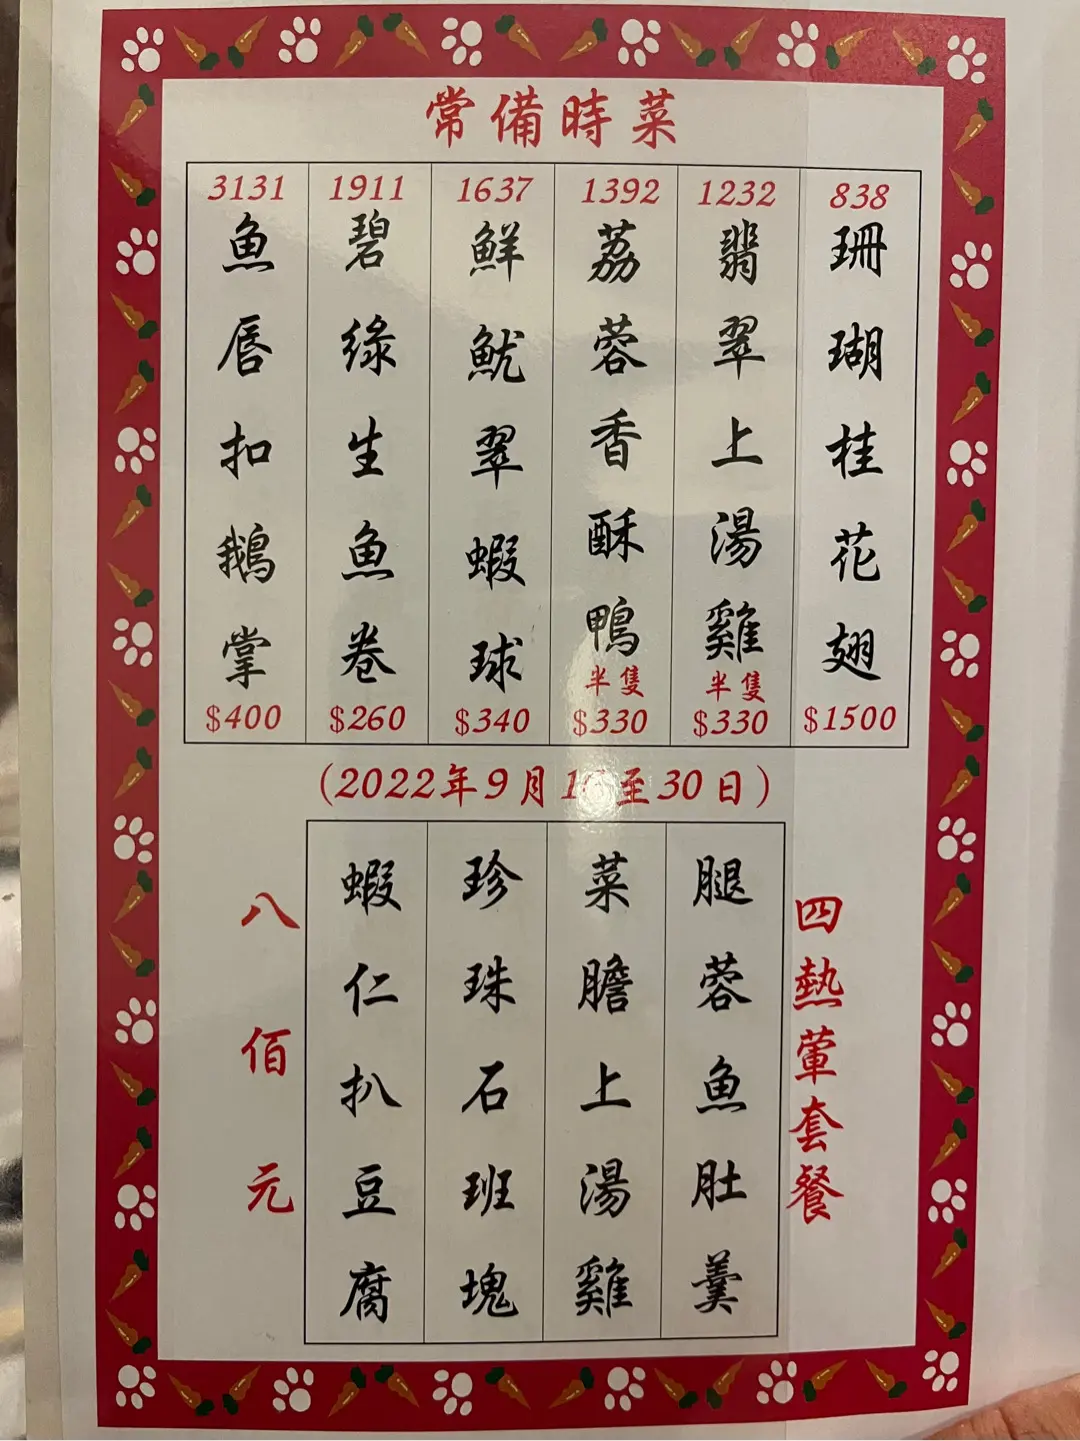 常備時菜
838
珊瑚桂花翅
$1500
1232
翡翠上湯雞
半隻
$330
1392
荔蓉香酥鴨
半隻
$330
1637
鮮魷翠蝦球
$340
1911
碧綠生魚卷
$260
3131
魚唇扣鵝掌
$400
(2022年9月16至30日)
四熱葷套餐
腿蓉魚肚羹
菜膽上湯雞
珍珠石班塊
蝦仁扒豆腐
八佰元